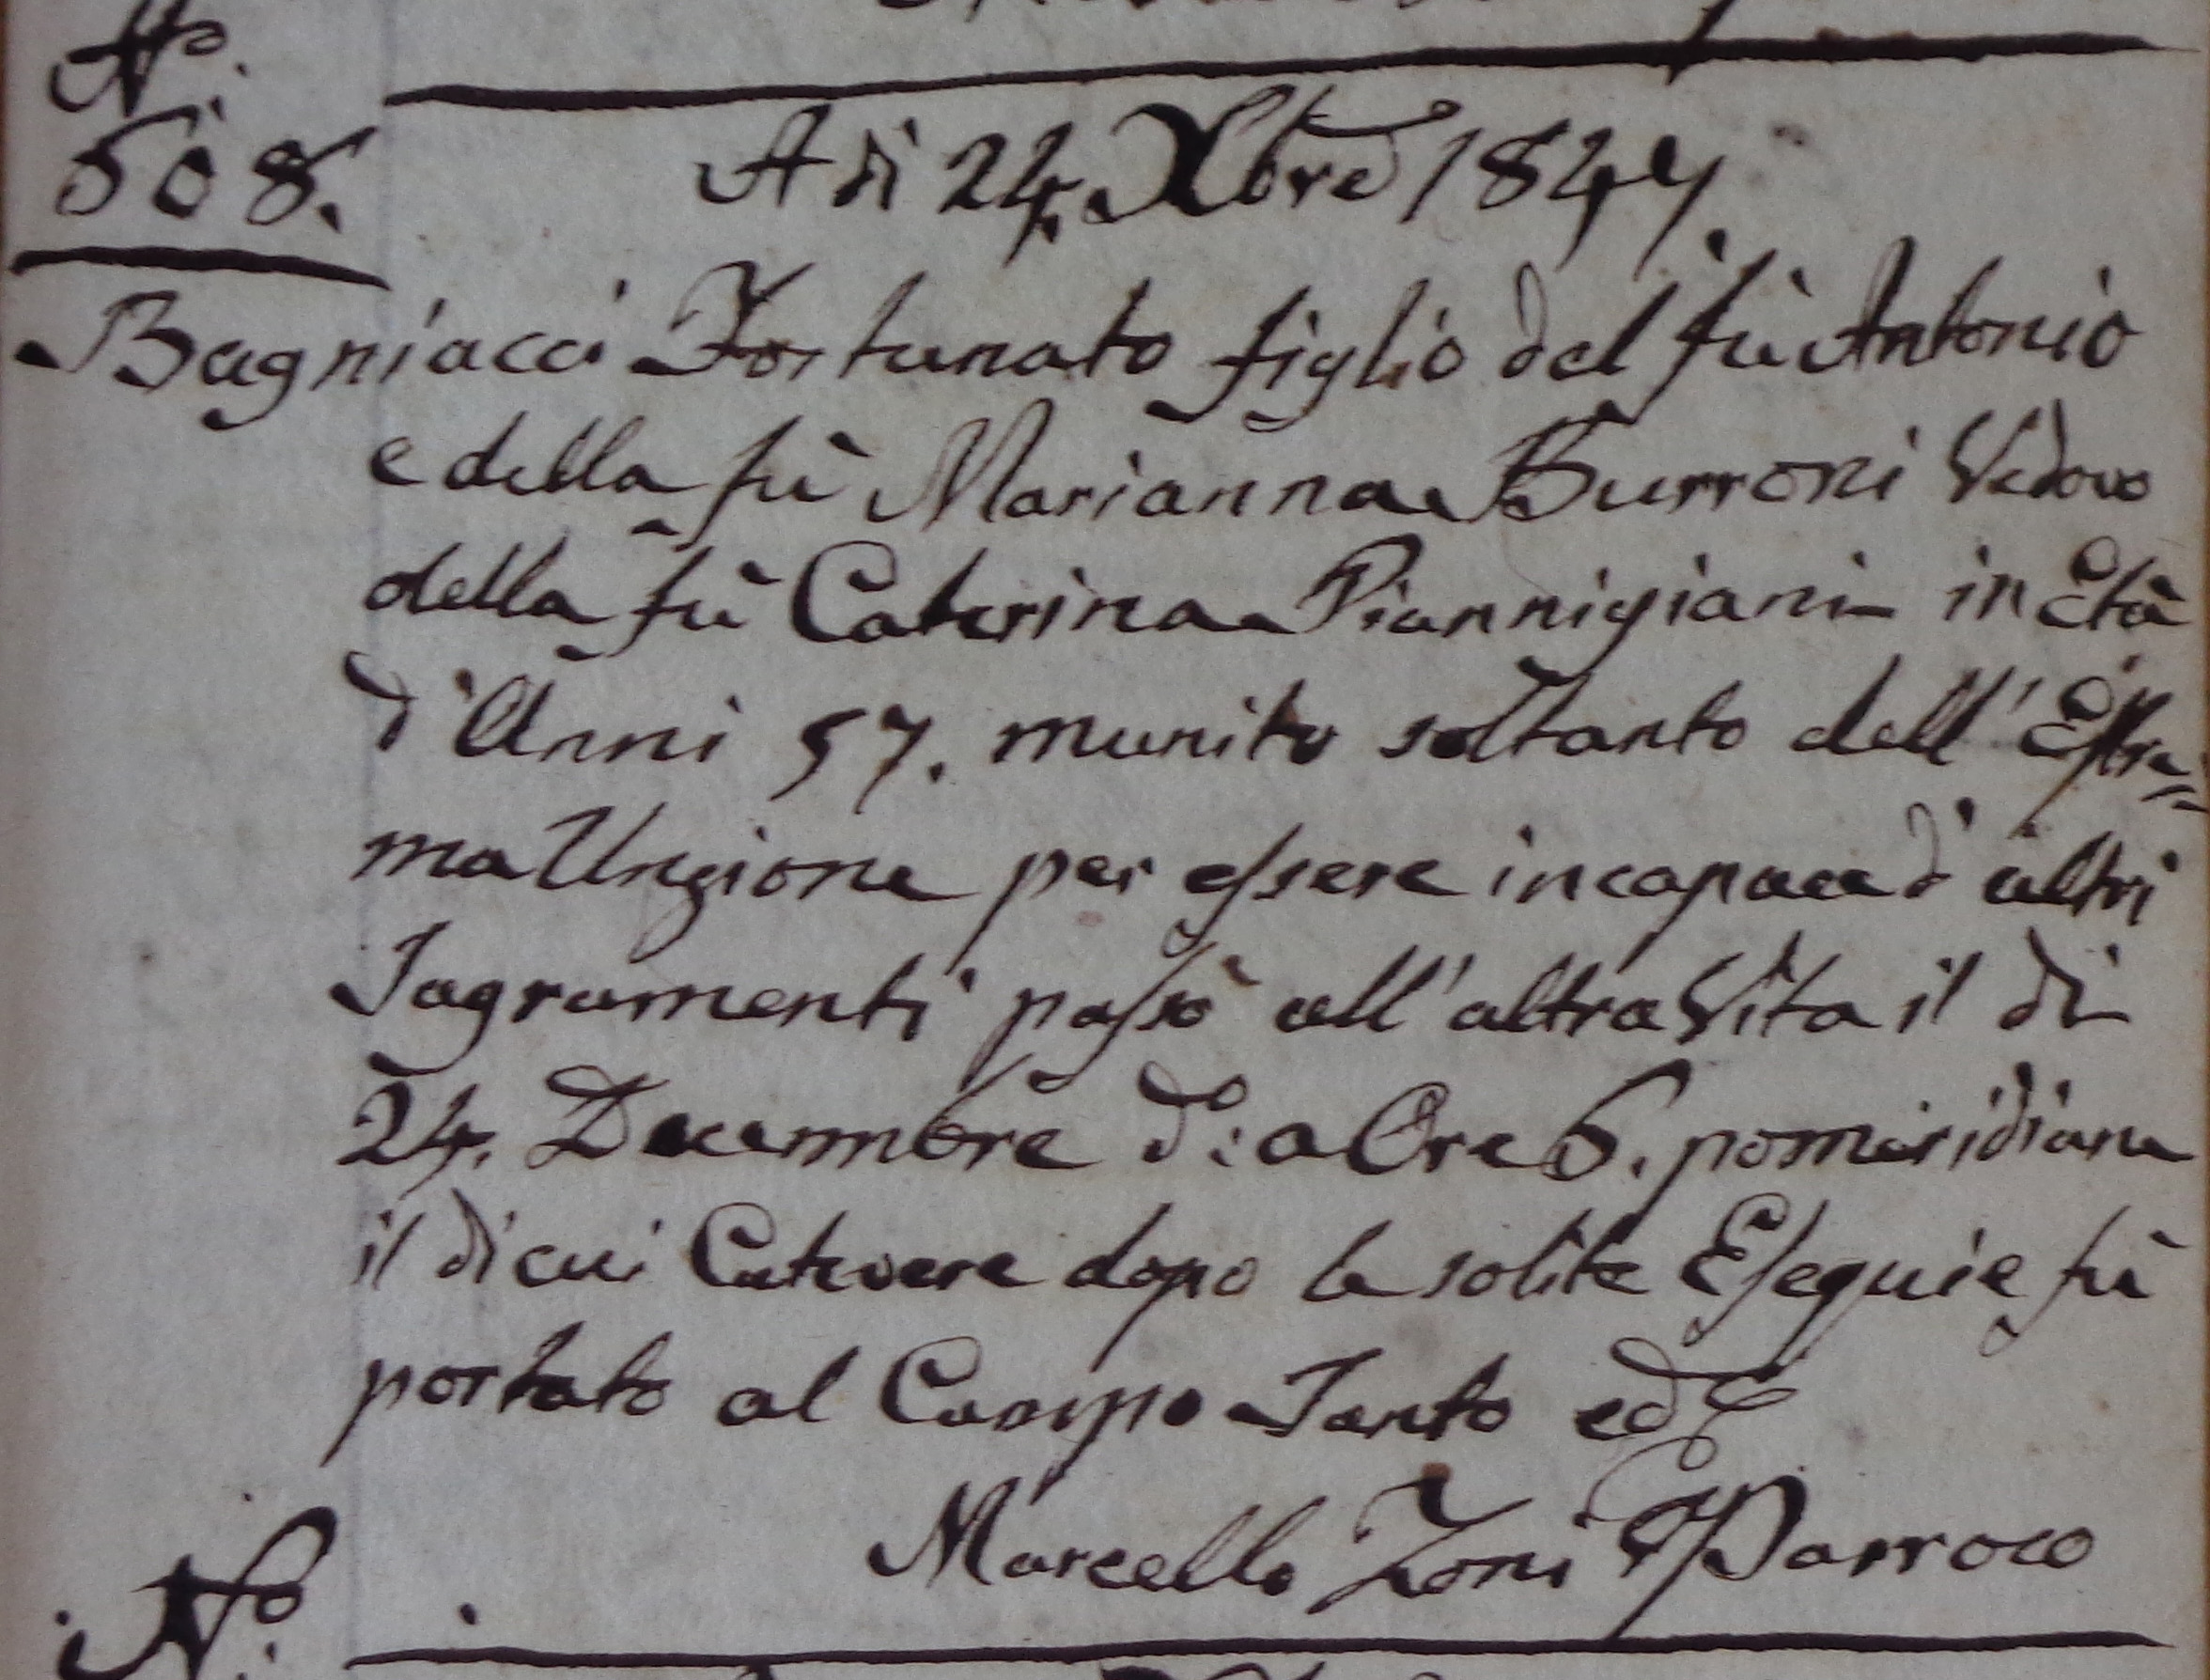 N.o
508.
A dì 24. Xbre 1847
Bagniacci Fortunato figlio del fù Antonio
e della fù Marianna Burroni Vedovo
della fù Caterina Piannigiani in Età
d'Anni 57. munito soltanto dell'Estre=
ma Unzione per essere incapace d'altri
Sagramenti passò all'altra Vita il dì
24. Decemmbre do: a Ore 6. pomeridiane
il di cui Catevere dopo le solite Esequie fù
portato al Campo Santo ed
Marcello Zoni Parroco
No